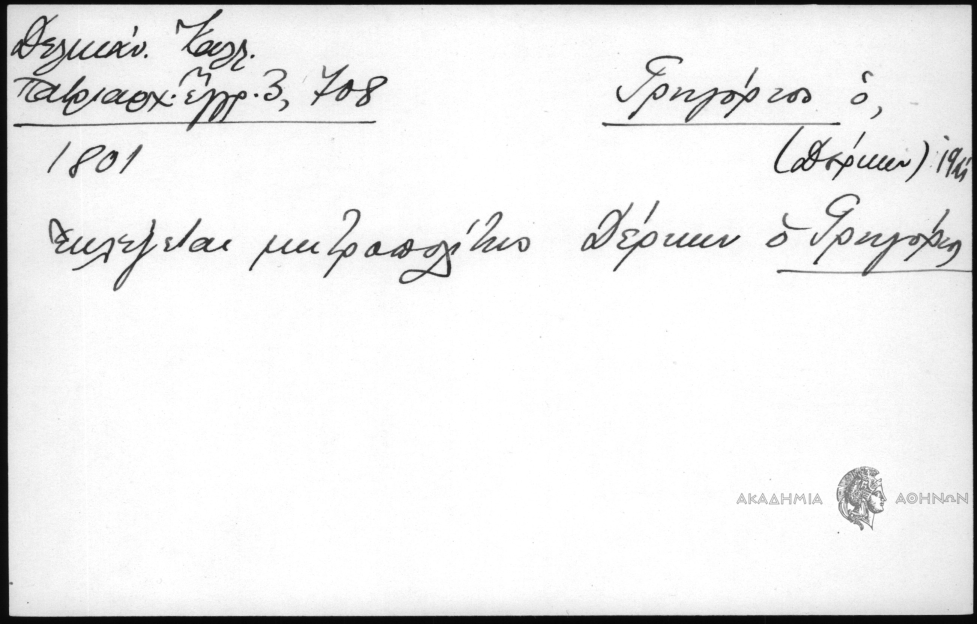 Δελικάν. Καλλ.
Πατριαρχ. Ἔγγρ. 3, 708
Γρηγόριος ὁ,
1801
(Δέρκων)
Ἐκλέγεται μητροπολίτης Δέρκων ὁ Γρηγόριος
ΑΚΑΔΗΜΙΑ ΑΘΗΝΩΝ